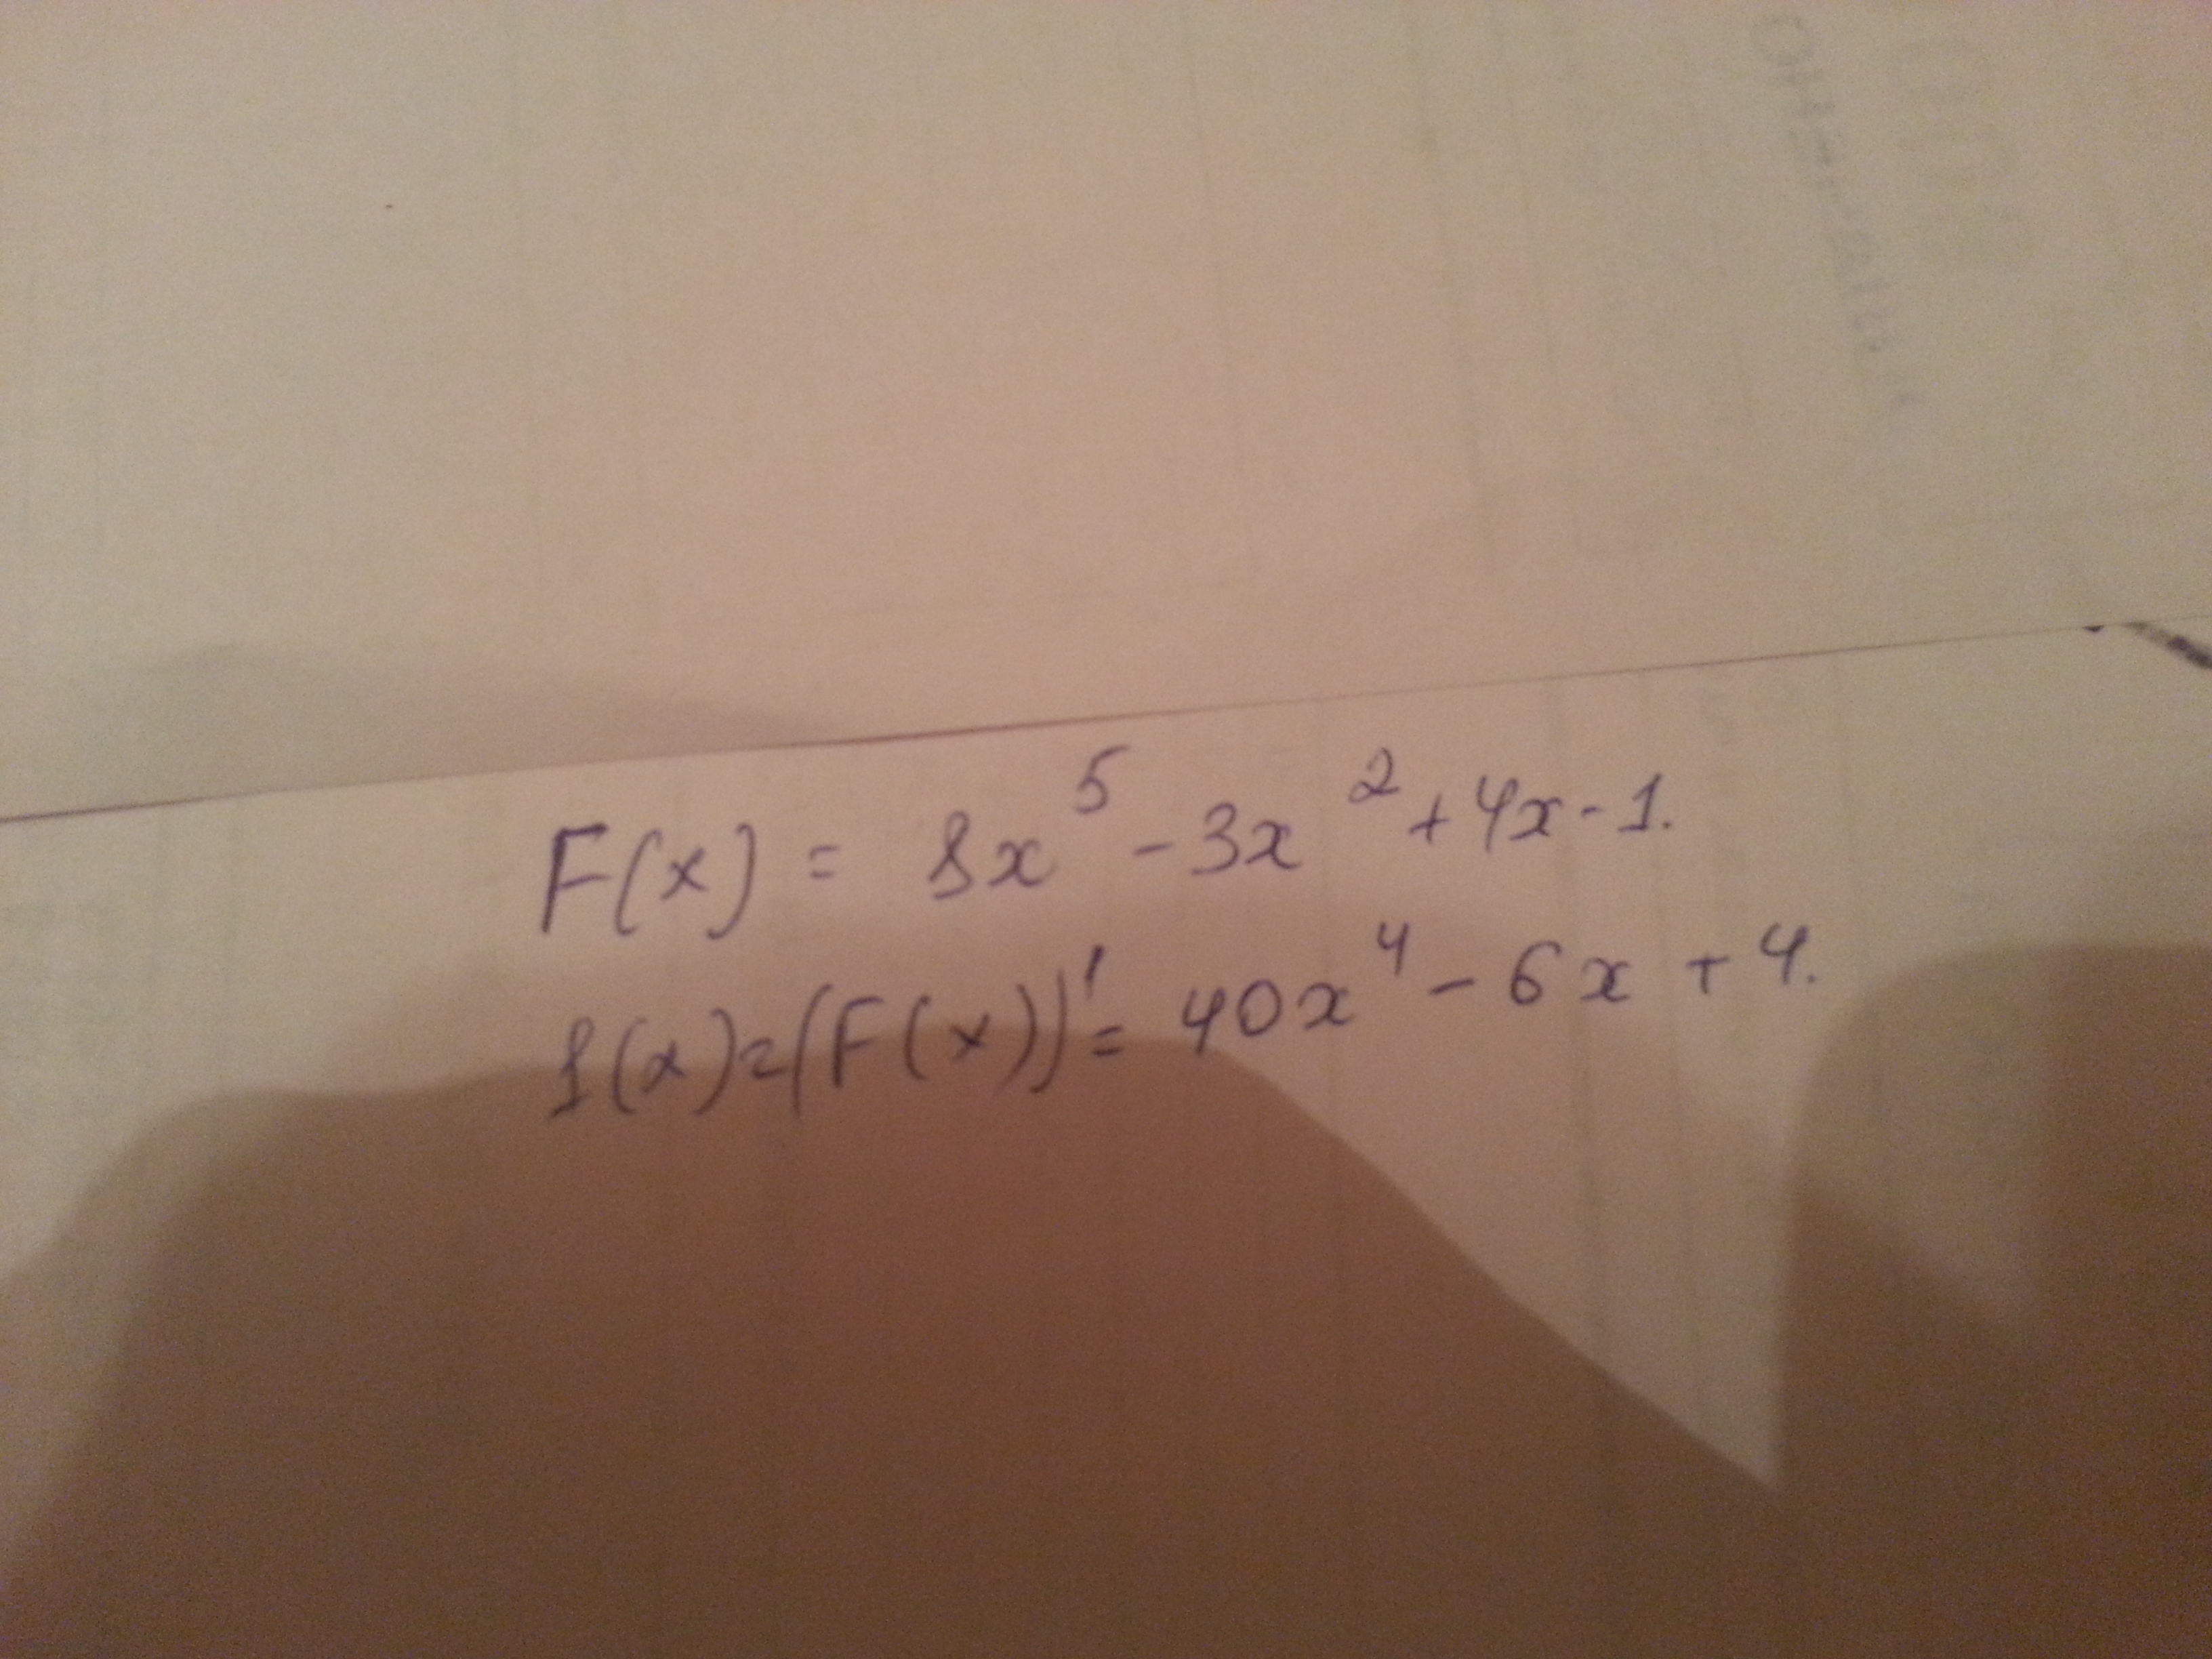 F(x) = 8x⁵ - 3x² + 4x - 1.
f(x) = (F(x))' = 40x⁴ - 6x + 4.